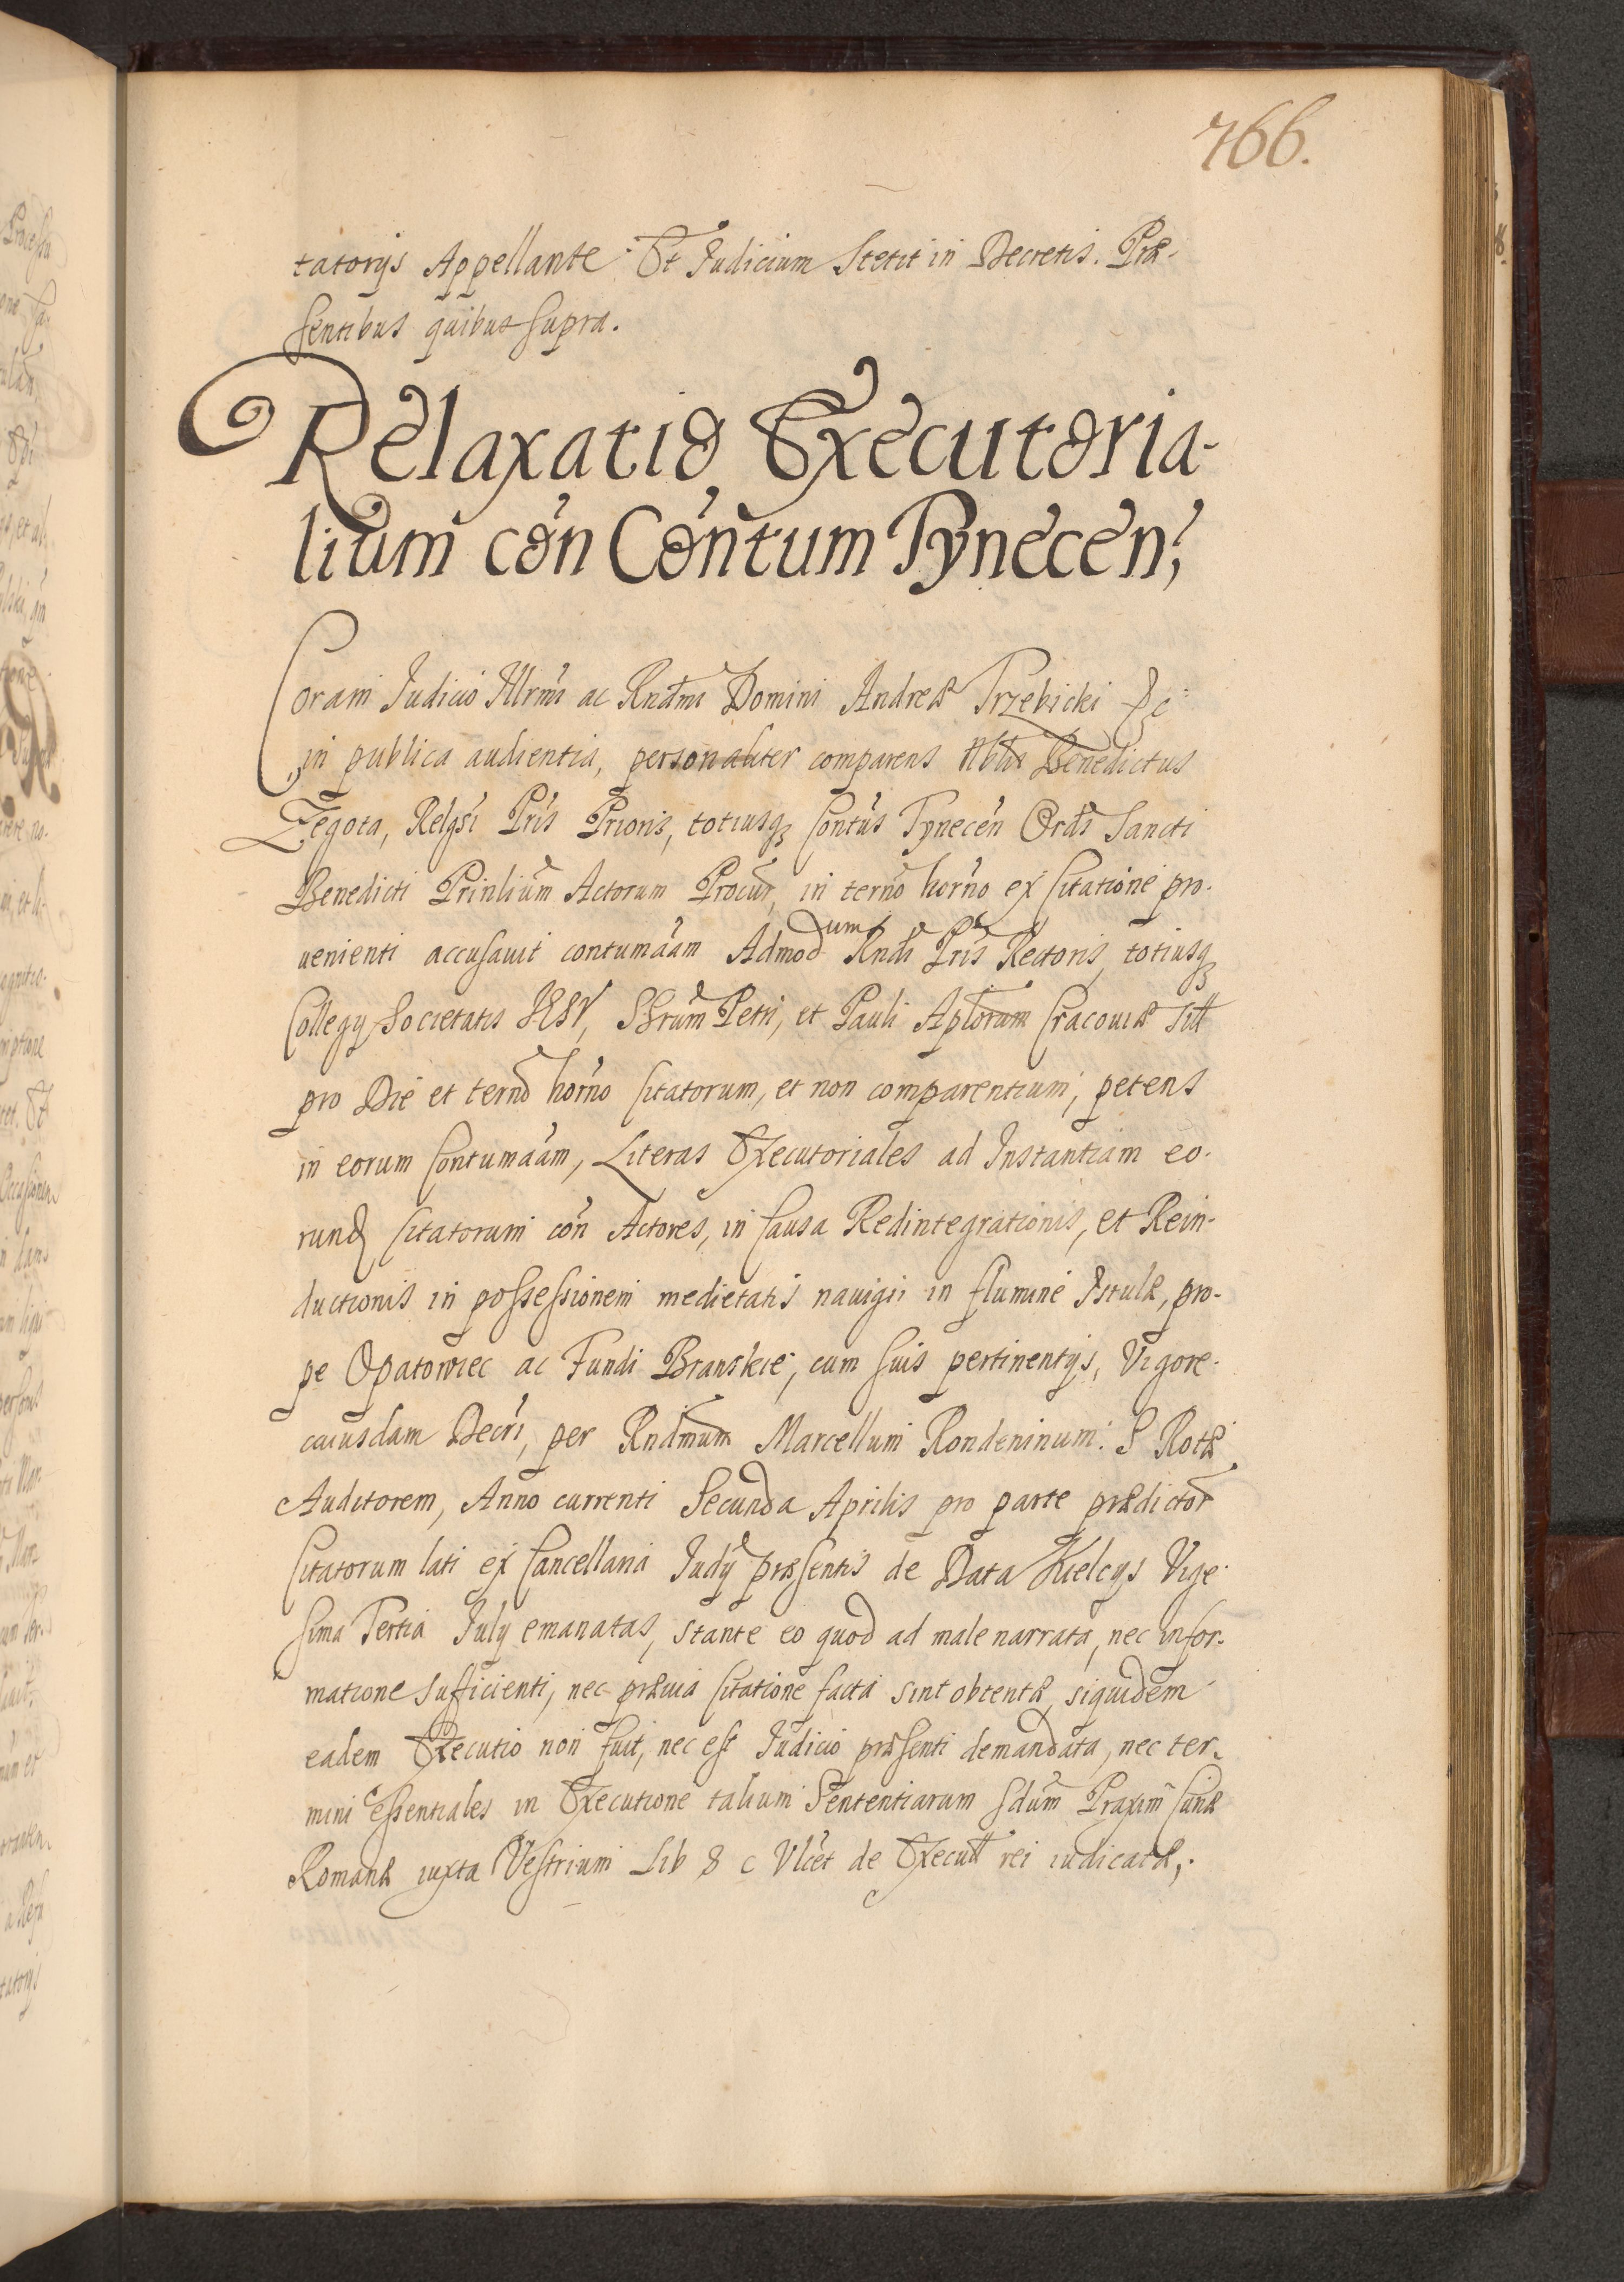 766.
tatorijs Appellante. Et Judicium Stetit in Decretis. Præ-
sentibus quibus supra.
Relaxatio Executoria-
lium cón Cóntum Tynecen;
Coram Judicio Illrmi ac Rndmi Domini Andreæ Trzebicki &c
in publica audientia, personaliter comparens Nblis Benedictus
Zegota, Relgsi Pris Prioris, totiusq; Contus Tynecen Ordis Sancti
Benedicti Prinlium Actorum Procur, in terno horno ex Citatione pro-
uenienti accusauit contumaam Admodum Rndi Pris Rectoris, totiusq;
Collegij Societatis IESV, SSrum Petri, et Pauli Aplorum Cracouiæ Titt
pro Die et terno horno Citatorum, et non comparentium, petens
in eorum Contumaam, Literas Executoriales ad Instantiam eo-
rund Citatorum cón Actores, in Causa Redintegrationis, et Rein-
ductionis in possessionem medietatis nauigii in flumine Istulæ, pro-
pe Opatowiec ac Fundi Branskie, cum suis pertinentijs, Vigore
cuiusdam Decri, per Rndmum Marcellum Rondeninum. S Rotæ
Auditorem, Anno currenti Secunda Aprilis pro parte prædictor
Citatorum lati ex Cancellaria Judij præsentis de Data Kielcijs Vige-
sima Tertia Julij emanatas, stante eo quod ad male narrata, nec infor-
matione sufficienti, nec præuia Citatione facta sint obtentæ, siquidem
eadem Executio non fuit, nec est Judicio præsenti demandata, nec ter-
mini essentiales in Executione talium Sententiarum Sdum Praxim Curiæ
Romanæ iuxta Vestrium Lib 8 c Vlcet de Executt rei iudicatæ,